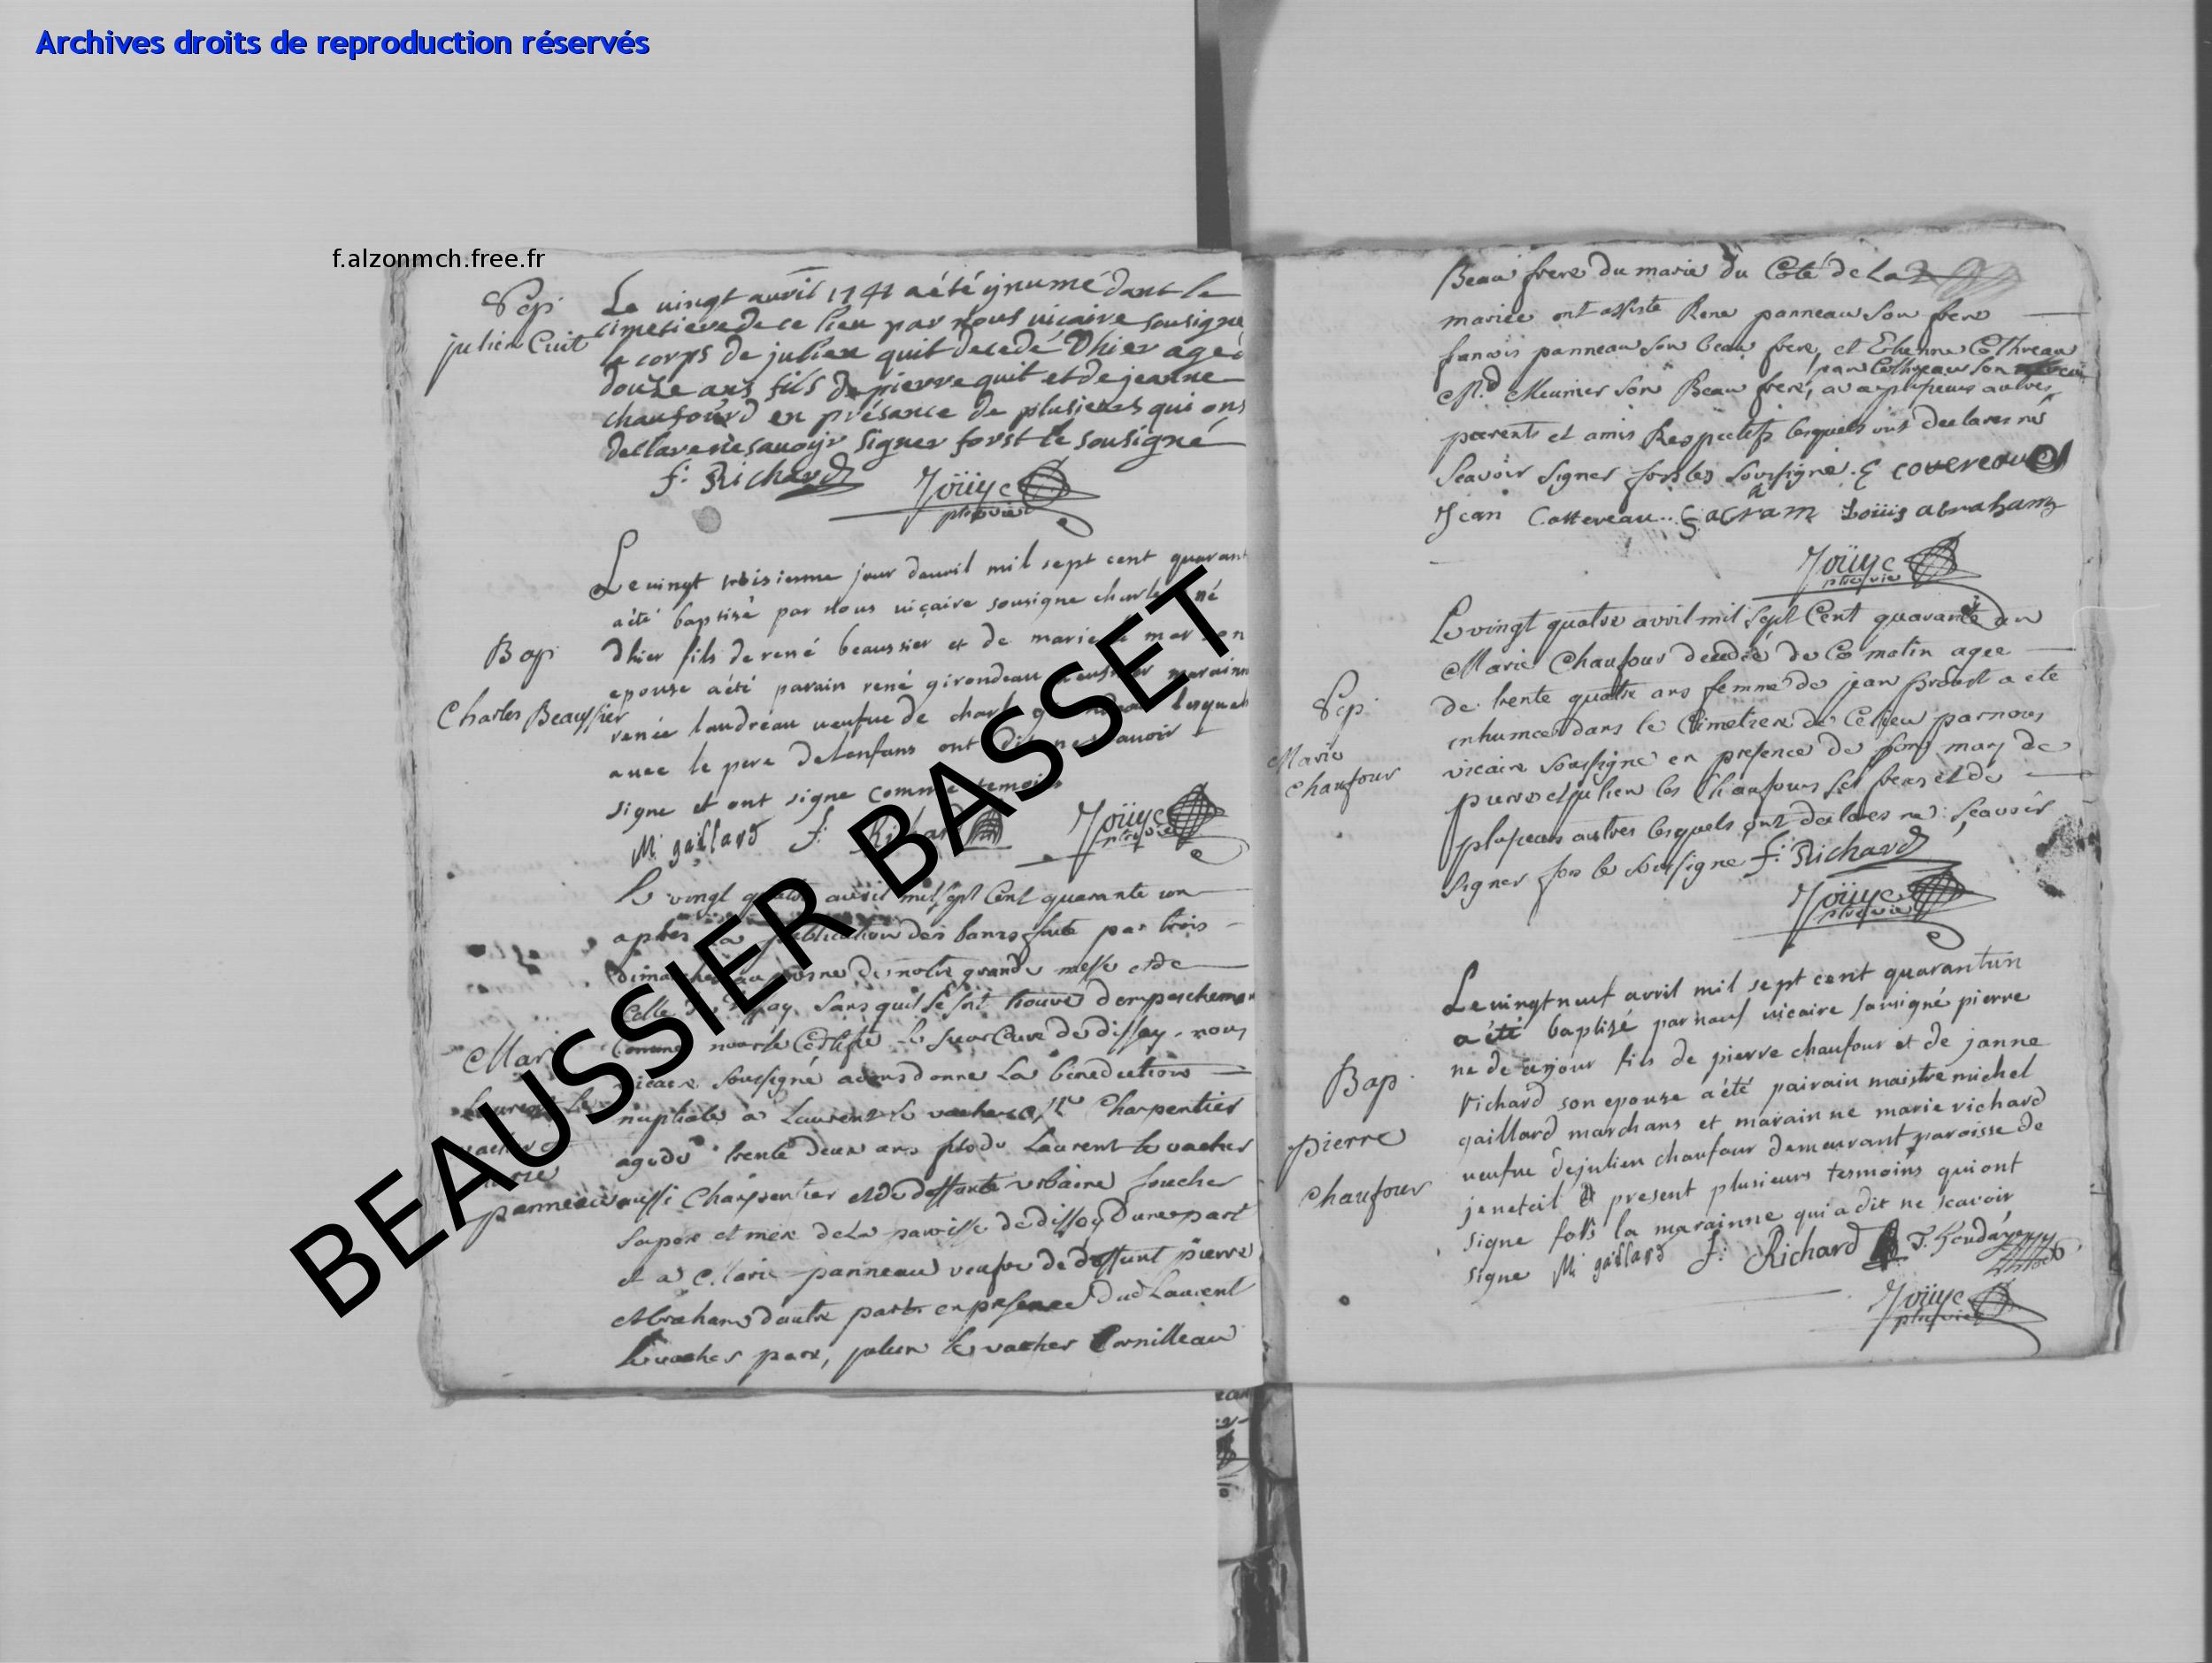 Archives droits de reproduction réservés
f.alzonmch.free.fr
BEAUSSIER BASSET
Sep.
julien Cuit
Le vingt avril 1741 a été ynumé dans le
cimetiere de ce lieu par nous vicaire sousigné
le corps de julien quit decedé Dhier agé
douze ans fils de pierre quit et de jeanne
chaufourd en présance de plusieurs qui ons
declare ne savoyr signer forst le sousigné
f. Richard Joüye
ptre vic
Bap.
Charles Beaussier
Le vingt troisieme jour davril mil sept cent quarant
a été baptisé par nous viçaire sousigne charle né
dhier fils de rené beaussier et de marie
epouse a été parain rené girondeau marainne
renée landreau veufve de charle lesquels
avec le pere delenfans ont dit ne savoir
signe et ont signe comme temoins
M. gaillard f. Richard Joüye
ptre vic
Mar
Laurent le
vacher et
marie
panneau
Le vingt quatre avril mil sept Cent quarante un
apres la publication des bans faite par trois
dimanches au prosne de notre grande messe et de
celle de dissay sans quil se soit trouvé dempeschement
Comme nous le Certifie le sieur Curé de dissay nous
vicaire soussigné avons donné La bénédiction
nuptiale a Laurent le vacher Charpentier
agé de trente deux ans fils de Laurent le vacher
aussi Charpentier et de deffunte urbaine foucher
ses pere et mere de La paroisse de dissay Dune part
et a Marie panneau veufve de deffunt pierre
Abraham dautre part en presence dud Laurent
le vacher pere, julien le vacher Cornilleau
Beau frere du marié du Coté de La
mariée ont assisté René panneau son frere
francois panneau son beau frere et Etienne Cothreau
Md Meunier son Beau frere, avec plusieurs autres
parents et amis Respectifs lesquels ont declarer ne
Scavoir signer fors les soussigné. E covereau
Jean Cottereau .. Louis abraham
Joüye
ptre vic
Sep.
Marie
Chaufour
Le vingt quatre avril mil sept Cent quarante un
Marie Chaufour decedée de Ce matin agee
de trente quatre ans femme de jean proust a ete
inhumée dans le Cimetiere de Ce lieu par nous
vicaire soussigné en presence de son mary de
pierre et julien les Chaufours ses freres et de
plusieurs autres lesquels ont declares ne sçavoir
signer fors le soussigne f. Richard
Joüye
ptre vic
Bap.
pierre
chaufour
Le vingt neuf avril mil sept cent quarantun
a été baptisé par nous vicaire sousigné pierre
ne de cejour fils de pierre chaufour et de janne
richard son epouse a été pairain maistre michel
gaillard marchans et marainne marie richard
veufve dejulien chaufour demeurant paroisse de
jeneteil present plusieurs tesmoins qui ont
signe fors la marainne qui a dit ne scavoir
signe M. gaillard f. Richard
Joüye
ptre vic